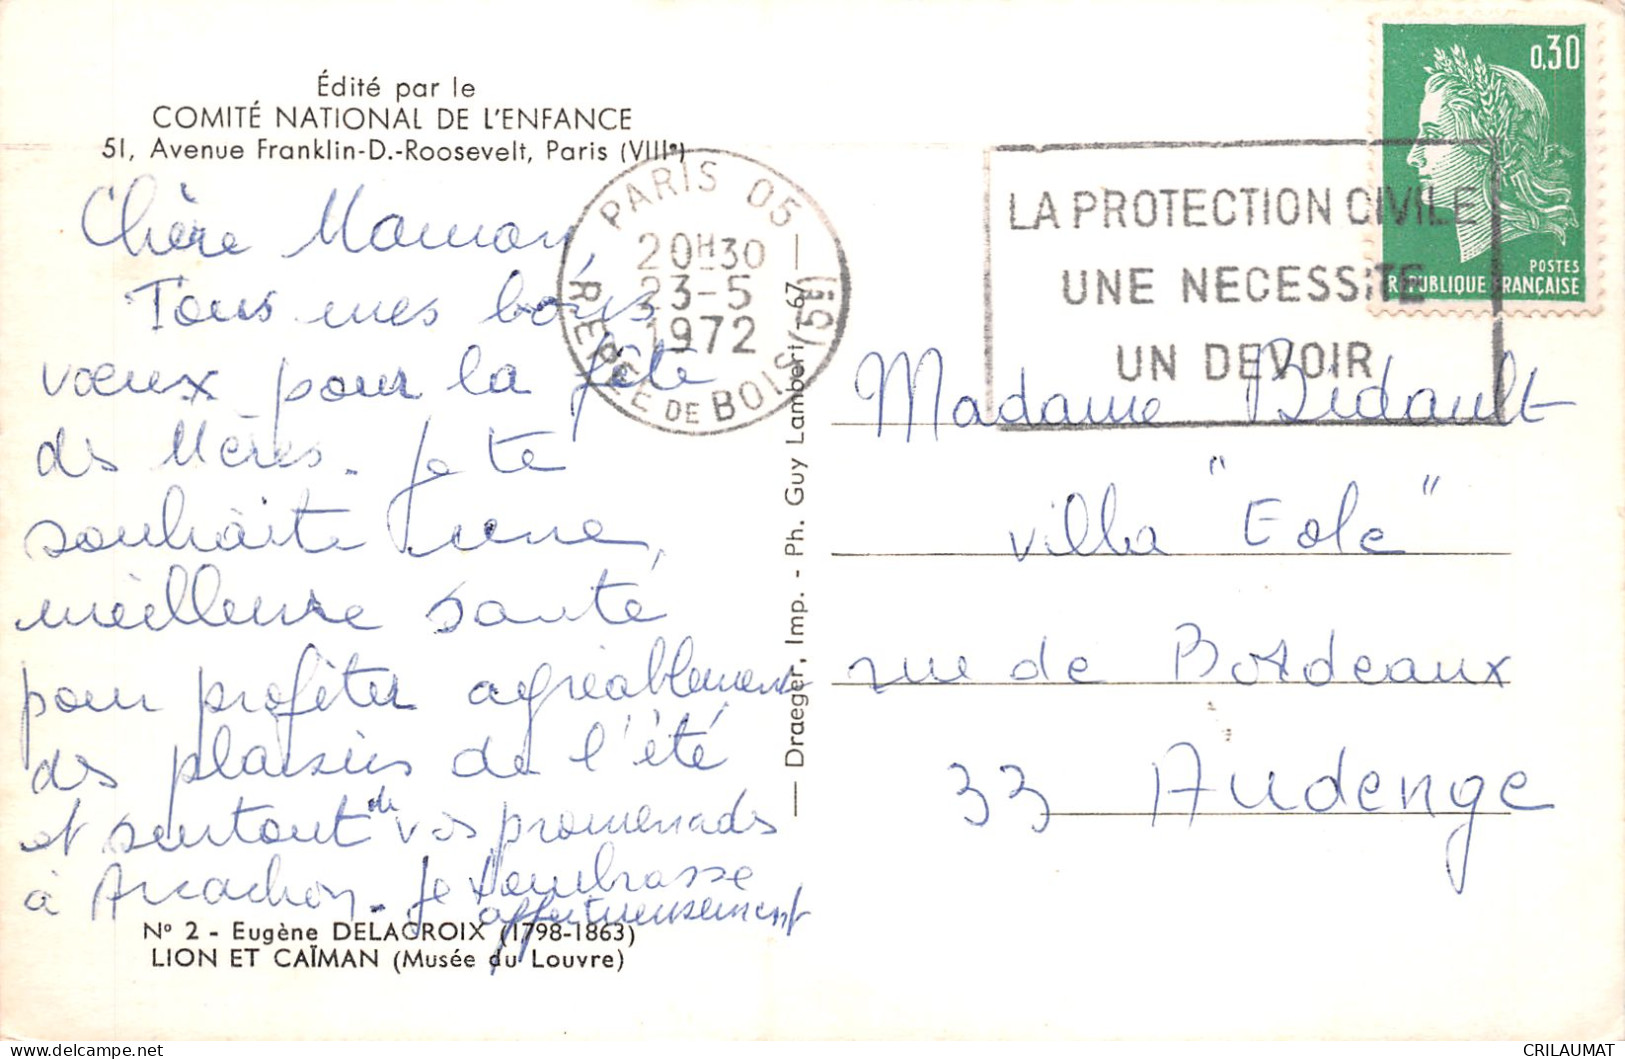 Édité par le
COMITÉ NATIONAL DE L'ENFANCE
51, Avenue Franklin-D.-Roosevelt, Paris (VIIIe)
Chère Maman
Tous mes bons
vœux pour la fête
des Mères. Je te
souhaite une
meilleure santé
pour profiter agréablement
des plaisirs de l'été
et surtout de vos promenades
à Arcachon. Je t'embrasse
affectueusement
N° 2 - Eugène DELACROIX (1798-1863)
LION ET CAÏMAN (Musée du Louvre)
Draeger, Imp. - Ph. Guy Lambert - 67
PARIS 05
20H30
23-5
1972
R. EPEE DE BOIS (5e)
LA PROTECTION CIVILE
UNE NECESSITE
UN DEVOIR
0,30
POSTES
REPUBLIQUE FRANÇAISE
Madame Bidault
villa "Eole"
rue de Bordeaux
33 Audenge
CRILAUMAT